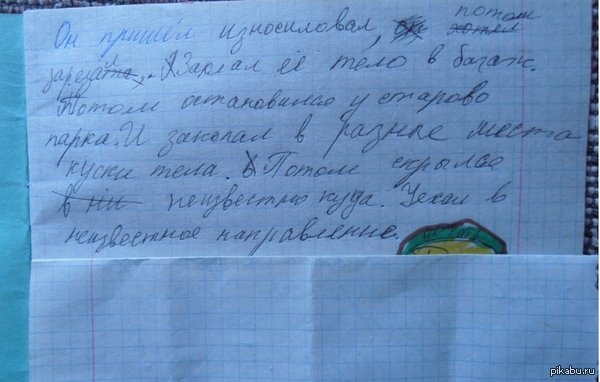 Он пришёл изнасиловал, потом
зарезал. Заклал её тело в багаж.
Потом остановился у старово
парка. И закопал в разные места
куски тела. Потом скрылся
в ни неизвестно куда. Уехал в
неизвестное направление.
pikabu.ru